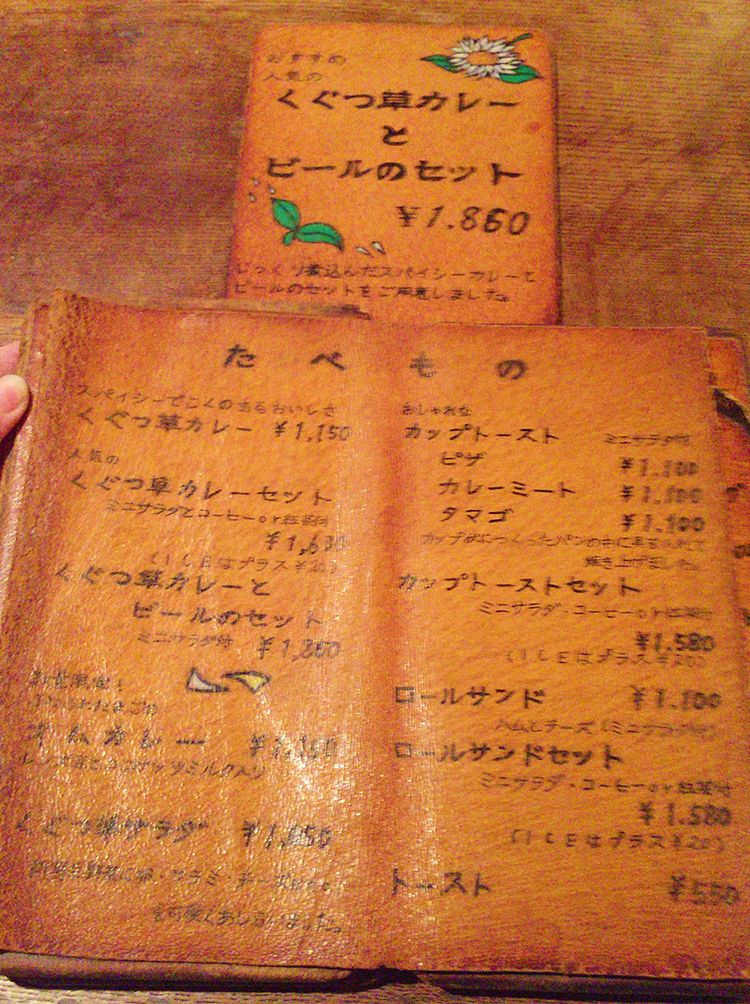 おすすめ
人気の
くぐつ草カレー
と
ビールのセット
￥1.860
じっくり煮込んだスパイシーカレーと
ビールのセットをご用意しました。
たべもの
スパイシーでこくのあるおいしさ
くぐつ草カレー ￥1,150
人気の
くぐつ草カレーセット
ミニサラダとコーヒーor紅茶付
(ICEはプラス￥20)
くぐつ草カレーと
ビールのセット
ミニサラダ付 ￥1,860
オムカレー
くぐつ草サラダ
おしゃれな
カップトースト ミニサラダ付
ピザ ￥1.100
カレーミート ￥1.100
タマゴ ￥1.100
焼き上げました。
カップトーストセット
ミニサラダ・コーヒーor紅茶付
￥1.580
(ICEはプラス￥20)
ロールサンド ￥1.100
ハムとチーズ(ミニサラダ付)
ロールサンドセット
ミニサラダ・コーヒーor紅茶付
￥1.580
(ICEはプラス￥20)
トースト ￥550